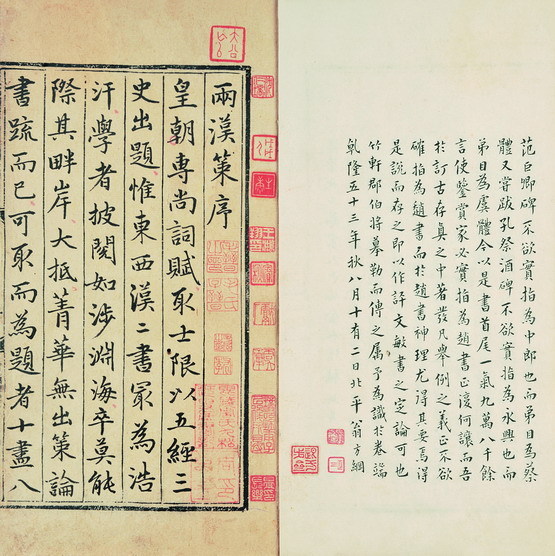 范巨卿碑不欲實指為中郎也而弟目為蔡
體又嘗跋孔祭酒碑不欲實指為永興也而
弟目為虞體今以是書首尾一氣九萬八千餘
言使鑒賞家必實指為趙書正復何讓而吾
於訂古存真之中著發凡舉例之義正不欲
確指為趙書而於趙書神理尤得其要焉得
是說而存之即以作評文敏書之定論可也
竹軒郡伯將摹勒而傳之屬予為識於卷端
乾隆五十三年秋八月十有二日北平翁方綱
兩漢策序
皇朝專尚詞賦取士限以五經三
史出題惟東西漢二書冣為浩
汗學者披閱如涉淵海卒莫能
際其畔岸大抵菁華無出策論
書疏而已可取而為題者十盡八